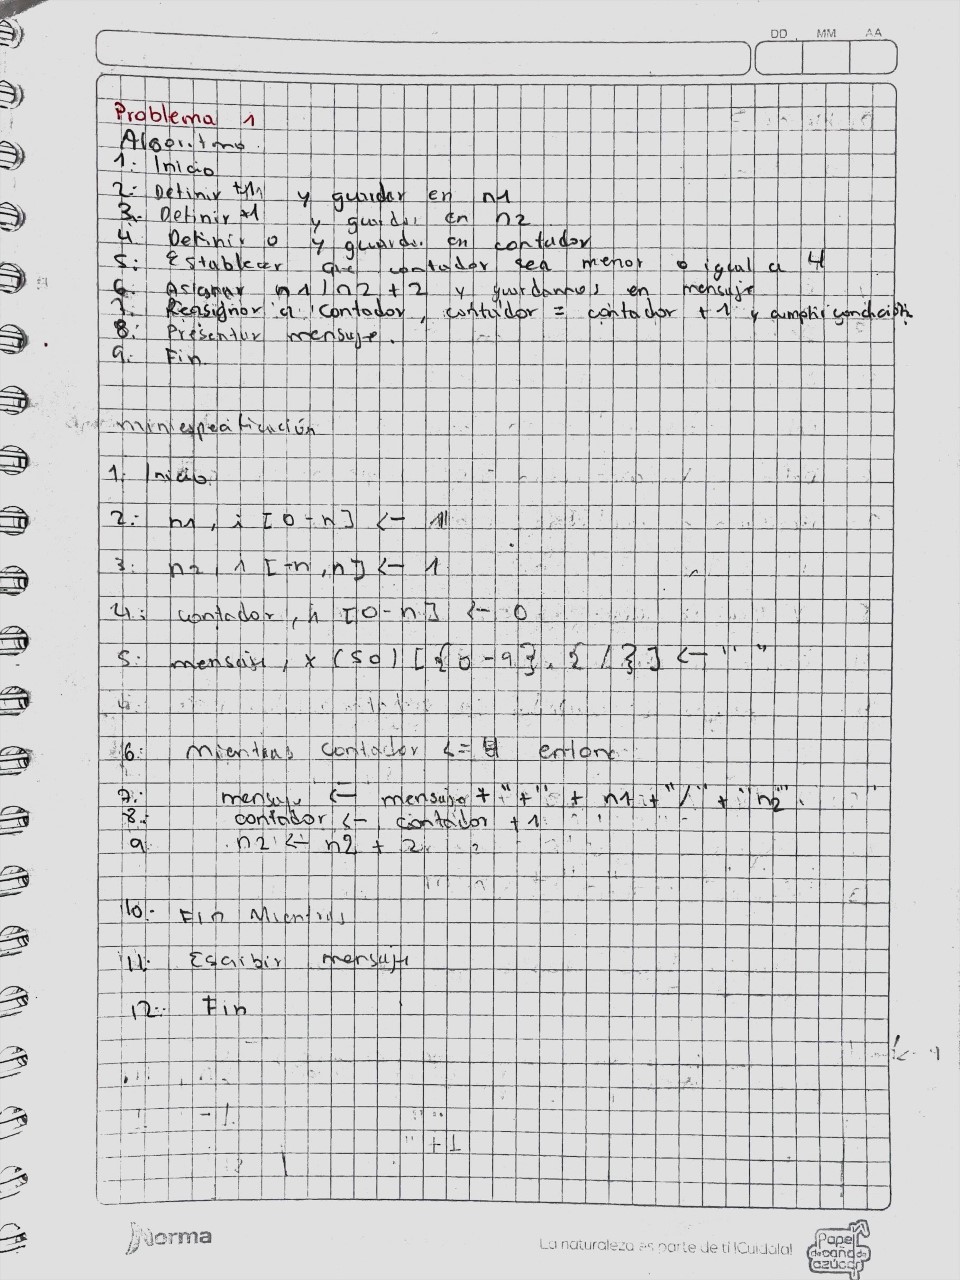 DD MM AA
Problema 1
Algoritmo
1: Inicio
2: Definir +1 y guardar en n1
3: Definir +1 y guardar en n2
4: Definir 0 y guardar en contador
5: Establecer que contador sea menor o igual a 4
6: Asignar n1/n2+2 y guardamos en mensaje
7: Reasignar a contador, contador = contador +1 y cumplir condición
8: Presentar mensaje.
9: Fin
miniespecificación
1: Inicio
2: n1, i [0-n] <- 1
3: n2, i [-n,n] <- 1
4: contador, [0-n] <- 0
5: mensaje, x (50) [{0-9}, {/}] <- " "
6: Mientras contador <= entonc
7: mensaje <- mensaje + "+" + n1 + "/" + "n2".
8: contador <- contador +1
9 n2 <- n2 + 2
10: Fin Mientras
11: Escribir mensaje
12: Fin
Norma
La naturaleza es parte de ti ¡Cuídala!
Papel de caña de azúcar